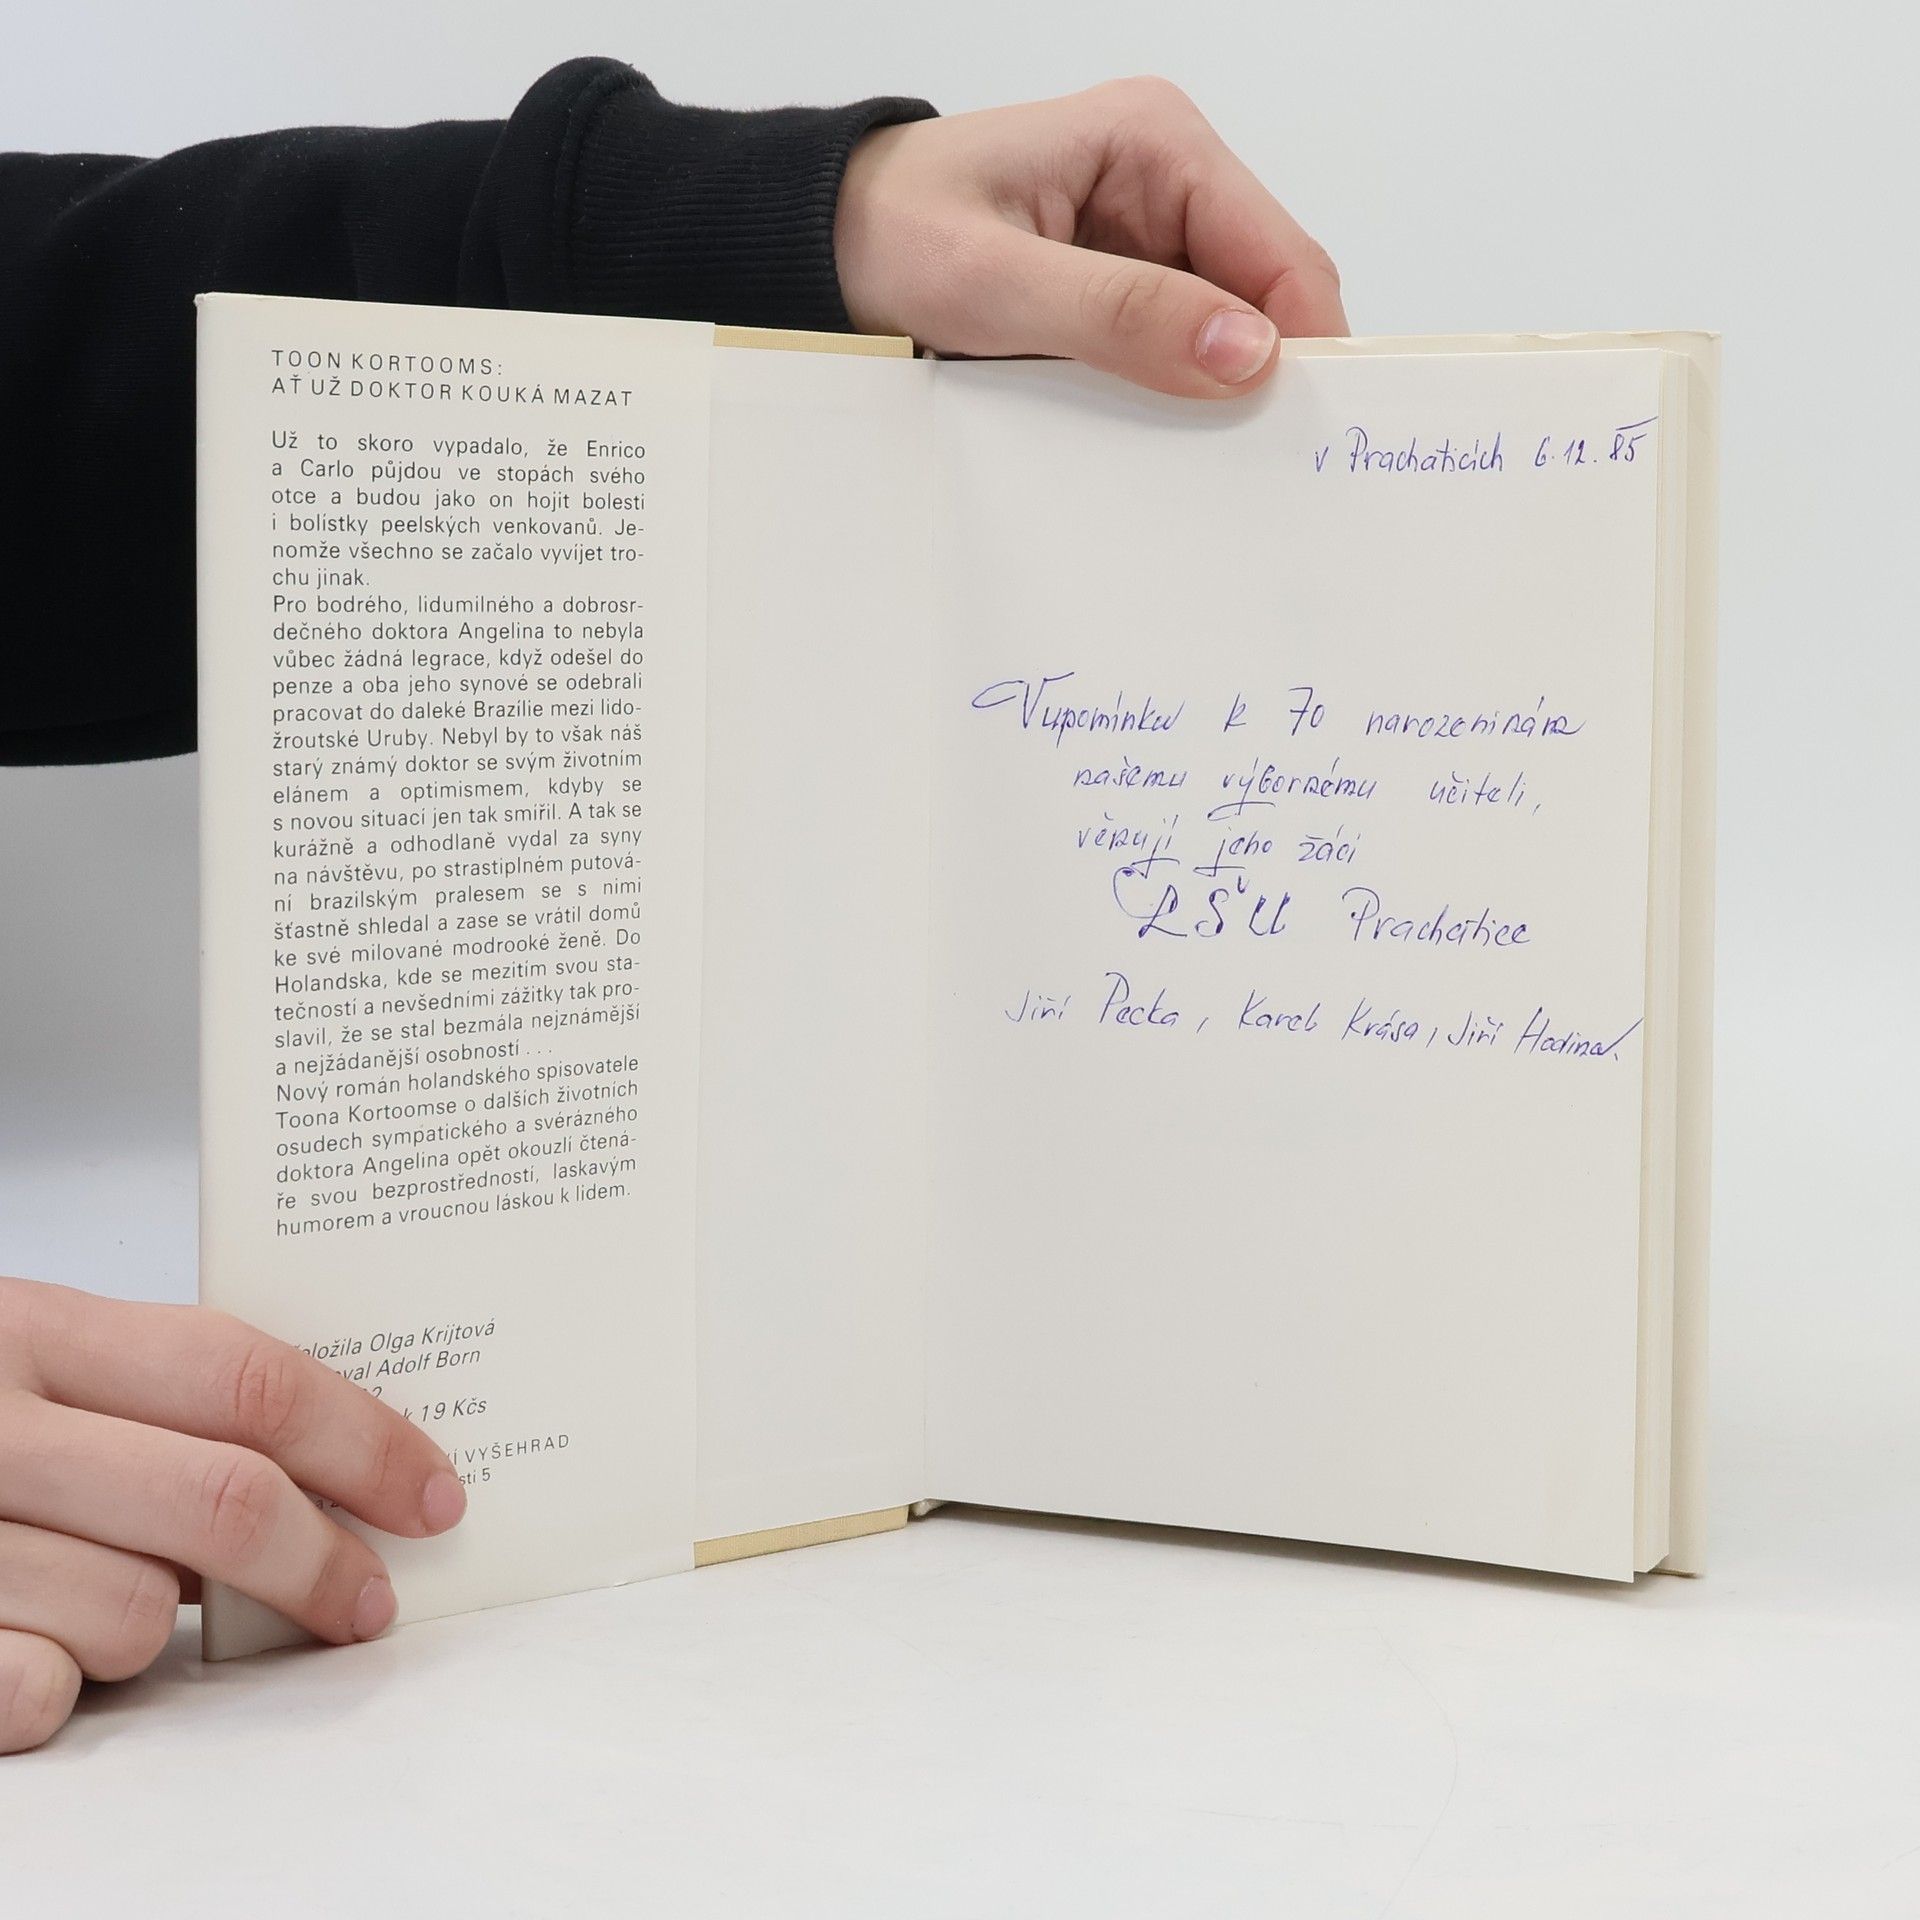 TOON KORTOOMS:
AŤ UŽ DOKTOR KOUKÁ MAZAT
Už to skoro vypadalo, že Enrico
a Carlo půjdou ve stopách svého
otce a budou jako on hojit bolesti
i bolístky peelských venkovanů. Je-
nomže všechno se začalo vyvíjet tro-
chu jinak.
Pro bodrého, lidumilného a dobrosr-
dečného doktora Angelina to nebyla
vůbec žádná legrace, když odešel do
penze a oba jeho synové se odebrali
pracovat do daleké Brazílie mezi lido-
žroutské Uruby. Nebyl by to však náš
starý známý doktor se svým životním
elánem a optimismem, kdyby se
s novou situací jen tak smířil. A tak se
kurážně a odhodlaně vydal za syny
na návštěvu, po strastiplném putová-
ní brazilským pralesem se s nimi
šťastně shledal a zase se vrátil domů
ke své milované modrooké ženě. Do
Holandska, kde se mezitím svou sta-
tečností a nevšedními zážitky tak pro-
slavil, že se stal bezmála nejznámější
a nejžádanější osobností . . .
Nový román holandského spisovatele
Toona Kortoomse o dalších životních
osudech sympatického a svérázného
doktora Angelina opět okouzlí čtená-
ře svou bezprostředností, laskavým
humorem a vroucnou láskou k lidem.
Olga Krijtová
Adolf Born
19 Kčs
VYŠEHRAD
5
v Prachaticích 6.12.85
Vupomínku k 70 narozeninám
našemu výbornému učiteli,
věnují jeho žáci
LŠU Prachatice
Jiří Pecka, Karel Krása, Jiří Hodina.